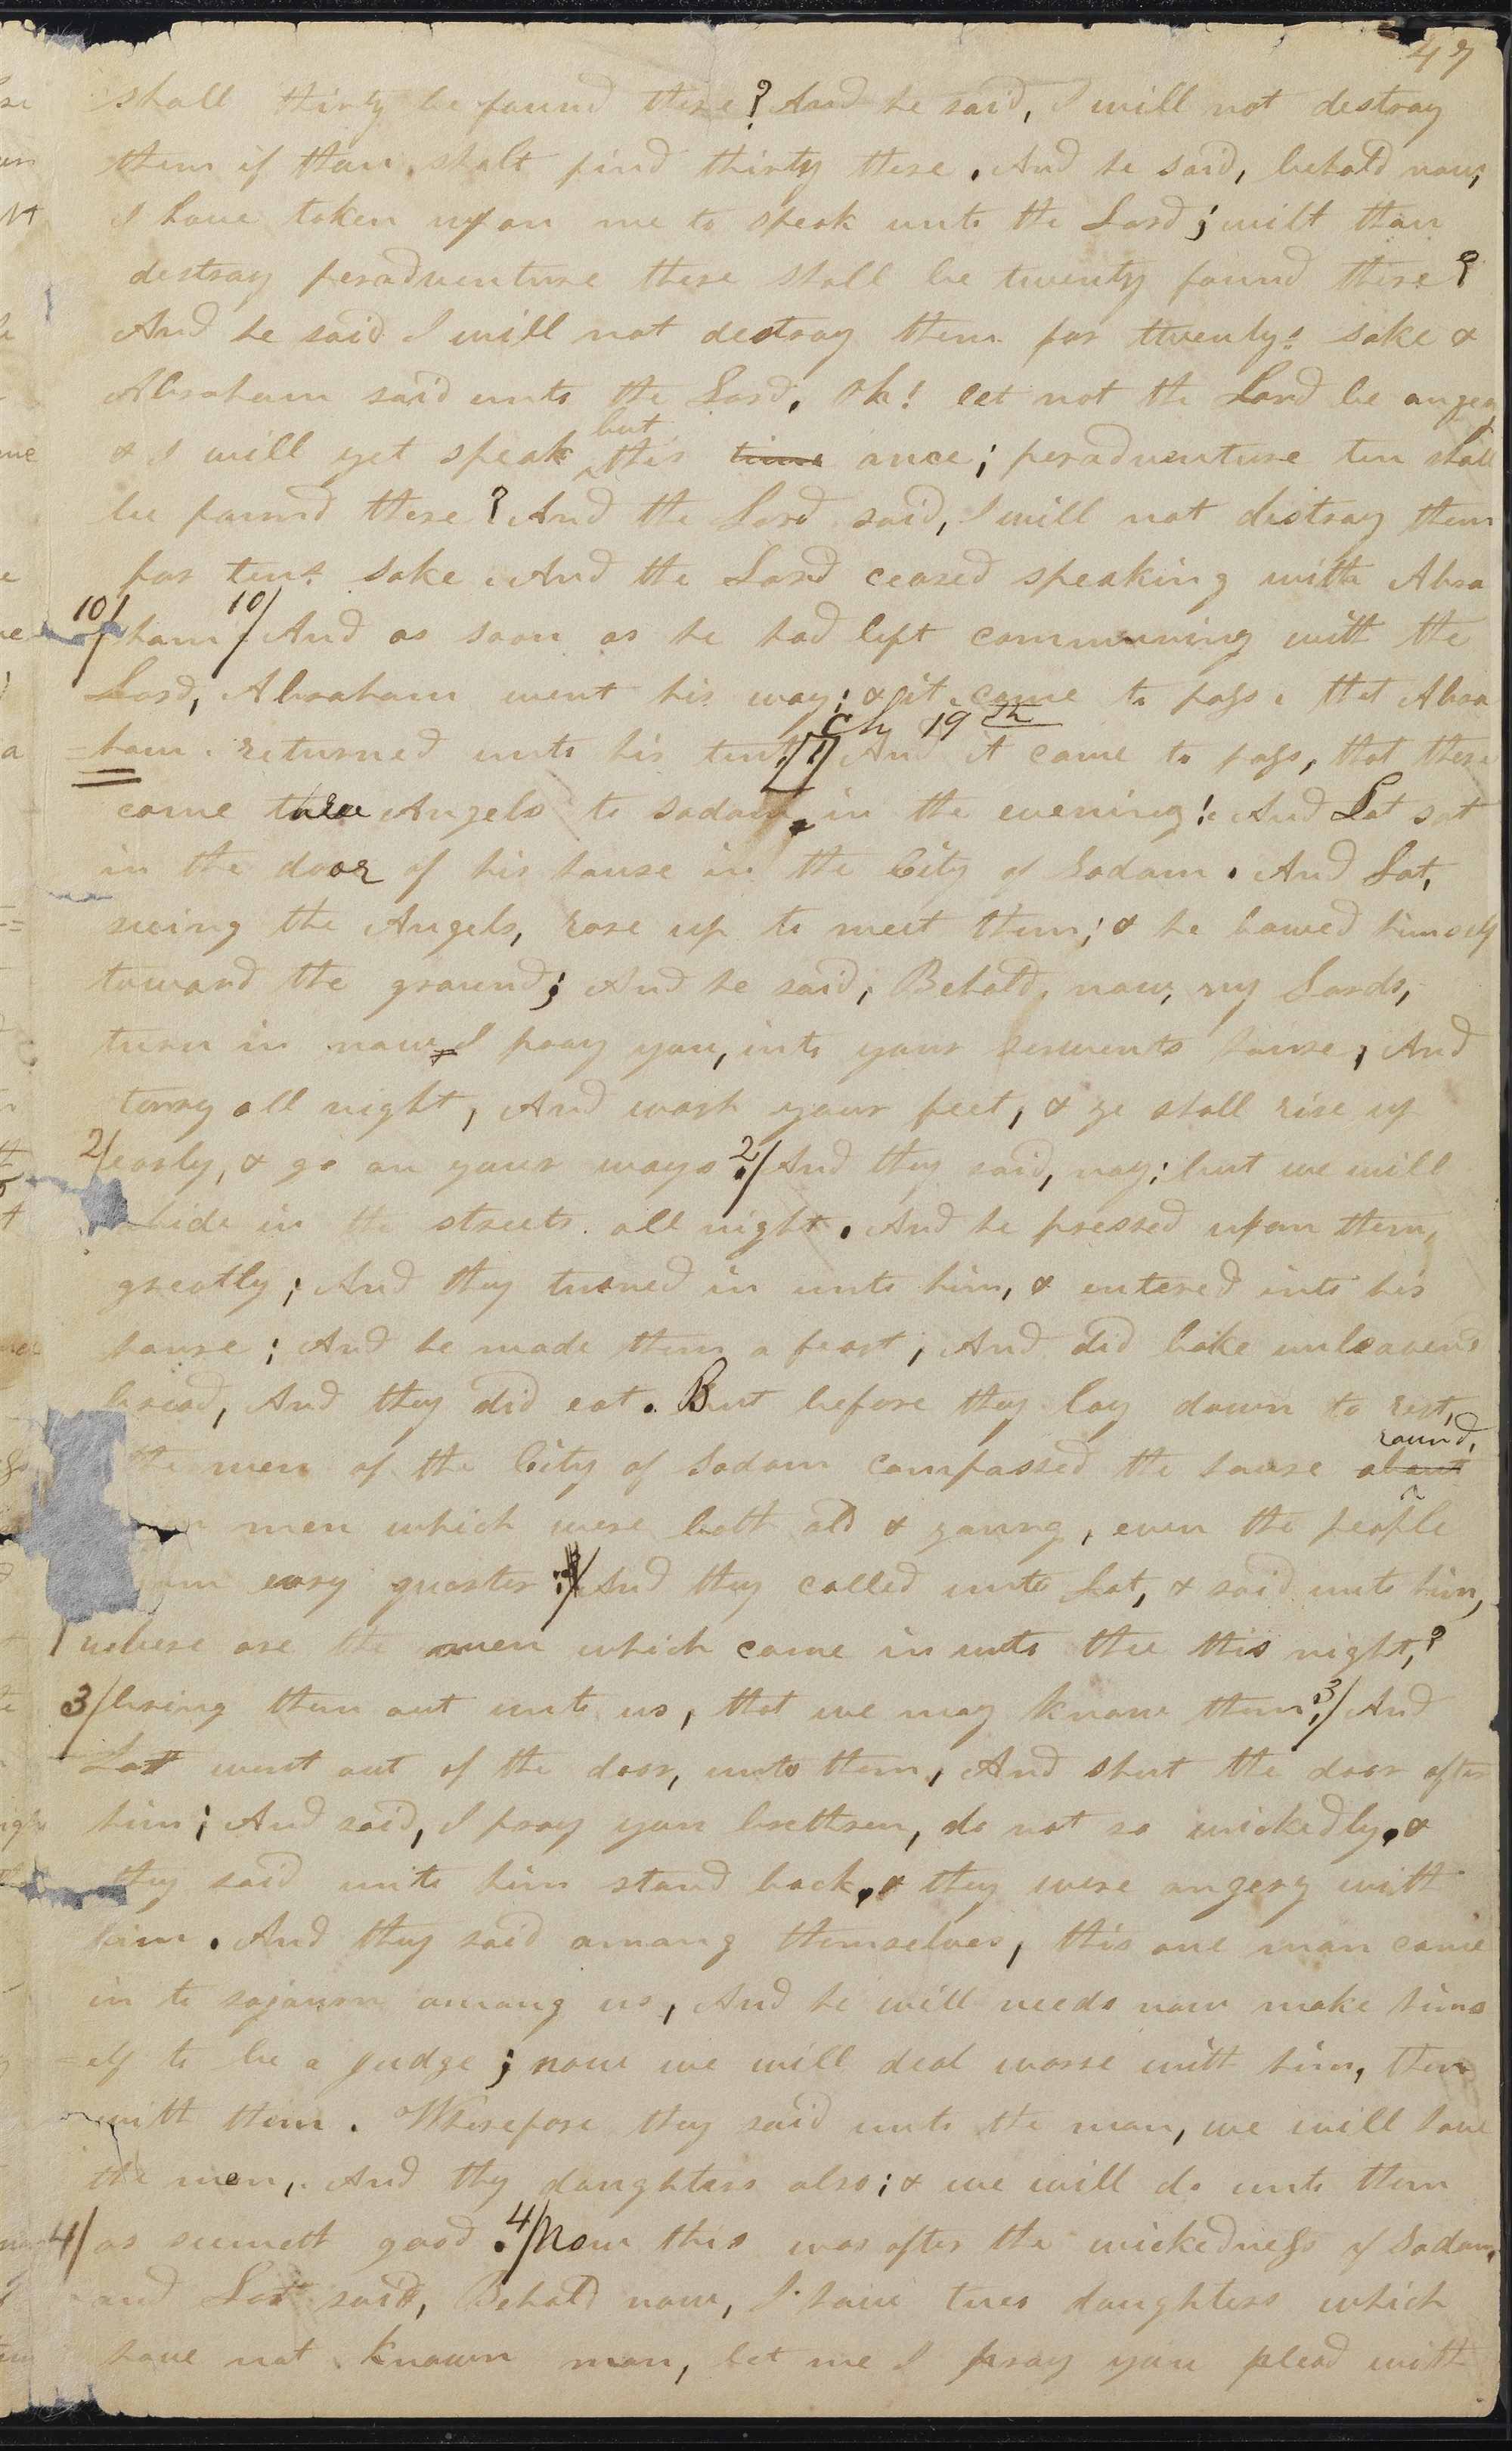 47
shall thirty be found there? And he said, I will not destroy
them if thou shalt find thirty there. And he said, behold now,
I have taken upon me to speak unto the Lord; wilt thou
destroy peradventure there shall be twenty found there?
And he said I will not destroy them for twenty's sake &
Abraham said unto the Lord, Oh! let not the Lord be angery
but
& I will yet speak this time once; peradventure ten shall
be found there? And the Lord said, I will not distroy them
for ten's sake. And the Lord ceased speaking with Abra
10/ ham 10/ And as soon as he had left communing with the
Lord, Abraham went his way; & it came to pass, that Abra
Ch 19th
=ham returned unto his tent. 1/ And it came to pass, that there
came three Angels to sodom, in the evening: And Lot sat
in the door of his house in the City of Sodom. And Lot,
seeing the Angels, rose up to meet them; & he bowed himself
toward the ground; And he said, Behold, now, my Lords,
turn in now I pray you, into your servents house, And
tarry all night, And wash your feet, & ye shall rise up
2/ early, & go on your ways. 2/ And they said, nay; but we will
abide in the streets all night. And he pressed upon them,
greatly; And they turned in unto him, & entered into his
house; And he made them a feast, And did bake unleavend
bread, And they did eat. But before they lay down to rest,
round,
the men of the City of Sodom compassed the house about
men which were both old & young, even the people
evry quarter; 3/ And they called unto Lot, & said unto him,
where are the men which came in unto thee this night,?
3/ bring them out unto us, that we may know them; 3/ And
Lot went out of the door, unto them, And shut the door after
him; And said, I pray you brethren, do not so wickedly, &
they said unto him stand back, & they were angery with
him. And they said among themselves, this one man came
in to sojourn among us, And he will needs now make hims
=elf to be a judge; now we will deal worse with him, then
with them. Wherefore they said unto the man, we will have
the men, And thy daughters also; & we will do unto them
4/ as seemeth good. 4/ Now this was after the wickedness of Sodom,
and Lot said, Behold now, I have two daughters which
have not known man, let me I pray you plead with